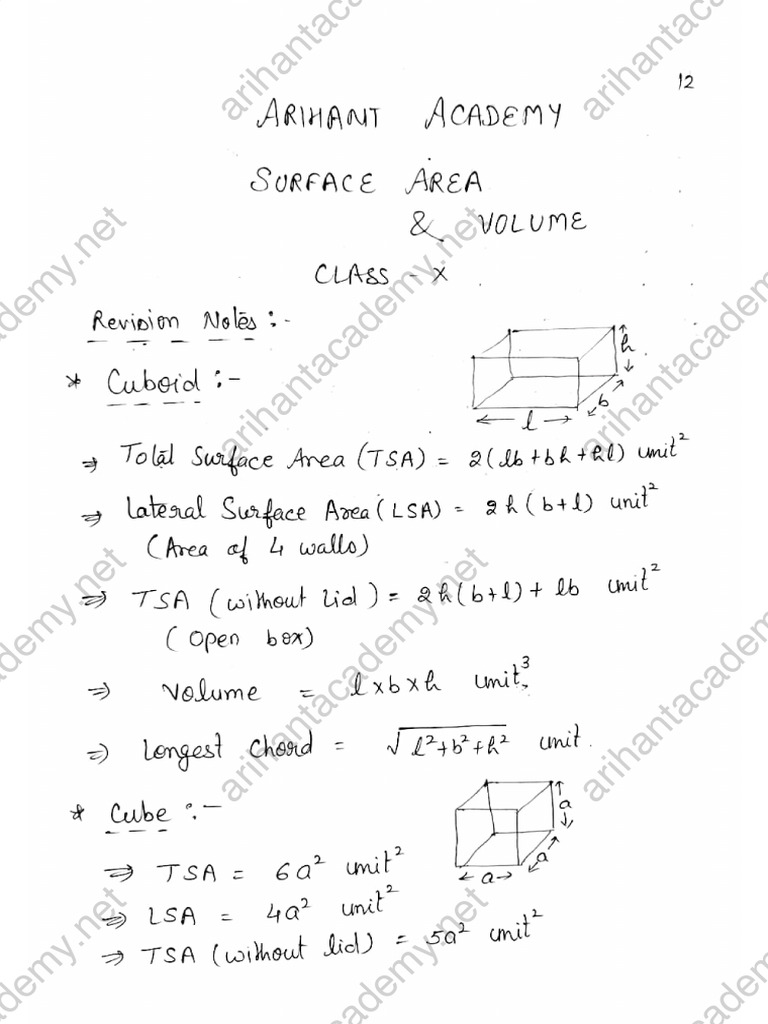 12
ARIHANT ACADEMY
SURFACE AREA
& VOLUME
CLASS - X
Revision Notes :-
* Cuboid :-
h
b
l
⇒ Total Surface Area (TSA) = 2(lb+bh+hl) unit²
⇒ Lateral Surface Area (LSA) = 2h(b+l) unit²
(Area of 4 walls)
⇒ TSA (without lid) = 2h(b+l)+ lb unit²
(Open box)
⇒ Volume = l×b×h unit³
⇒ Longest Chord = √l²+b²+h² unit.
* Cube :-
a
a
a
⇒ TSA = 6a² unit²
⇒ LSA = 4a² unit²
⇒ TSA (without lid) = 5a² unit²
arihantacademy.net